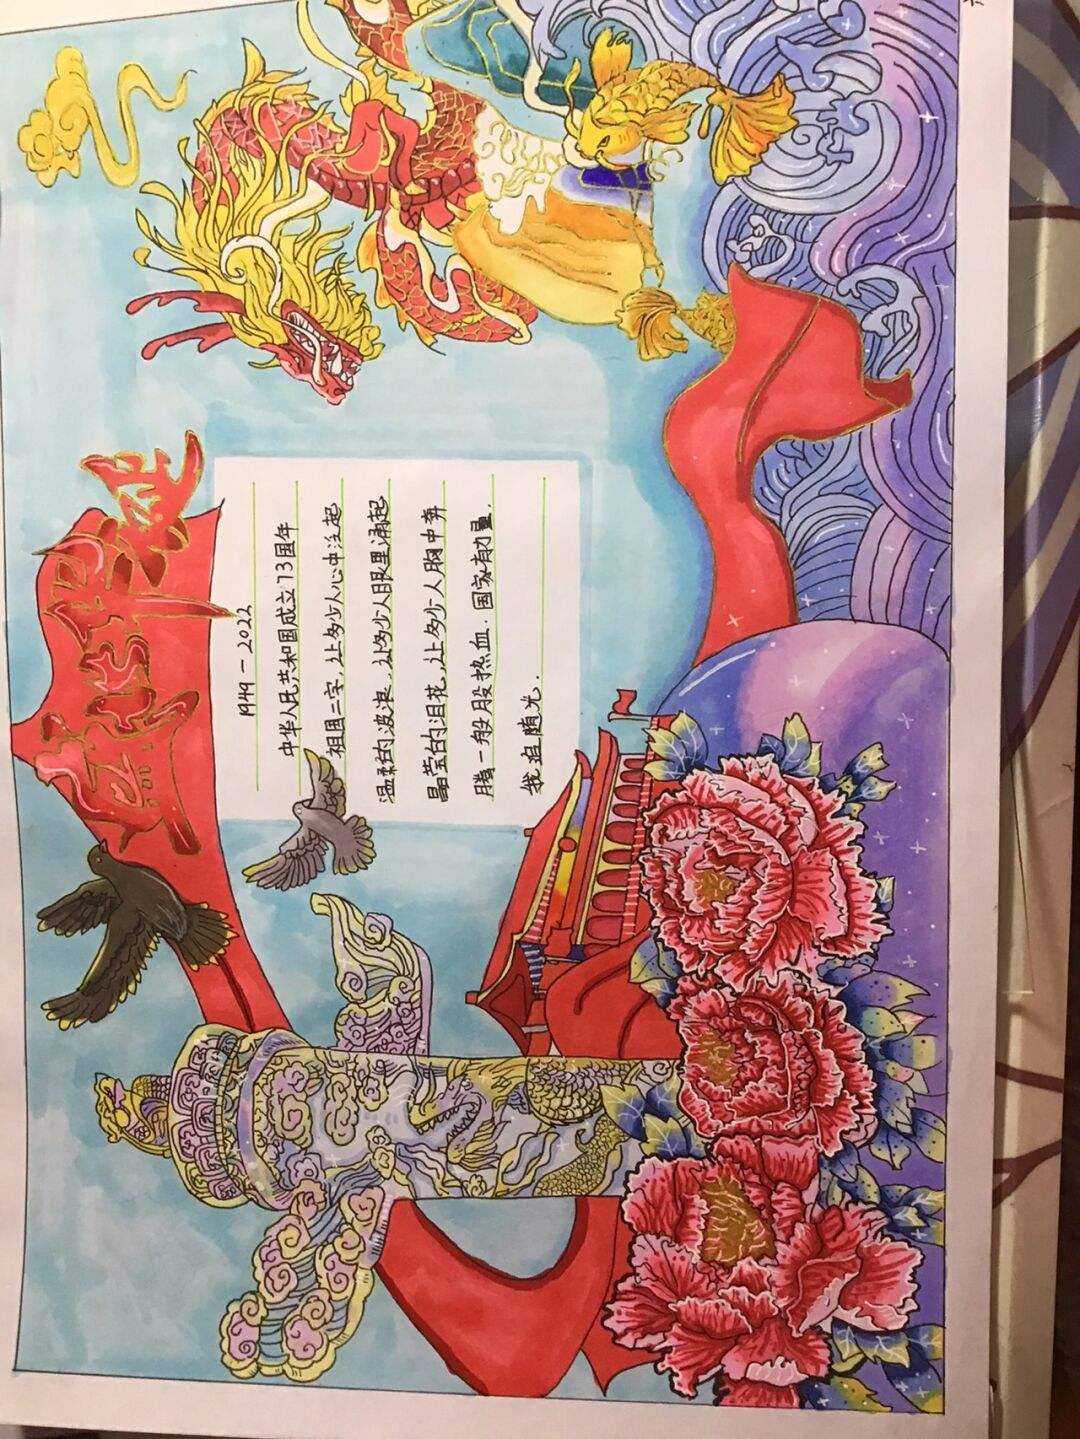 盛世华诞
1949-2022
中华人民共和国成立73周年
祖国二字,让多少人心中泛起
温柔的波浪,让多少人眼里涌起
晶莹的泪花,让多少人胸中奔
腾一般股热血.国家有力量.
我追随光.